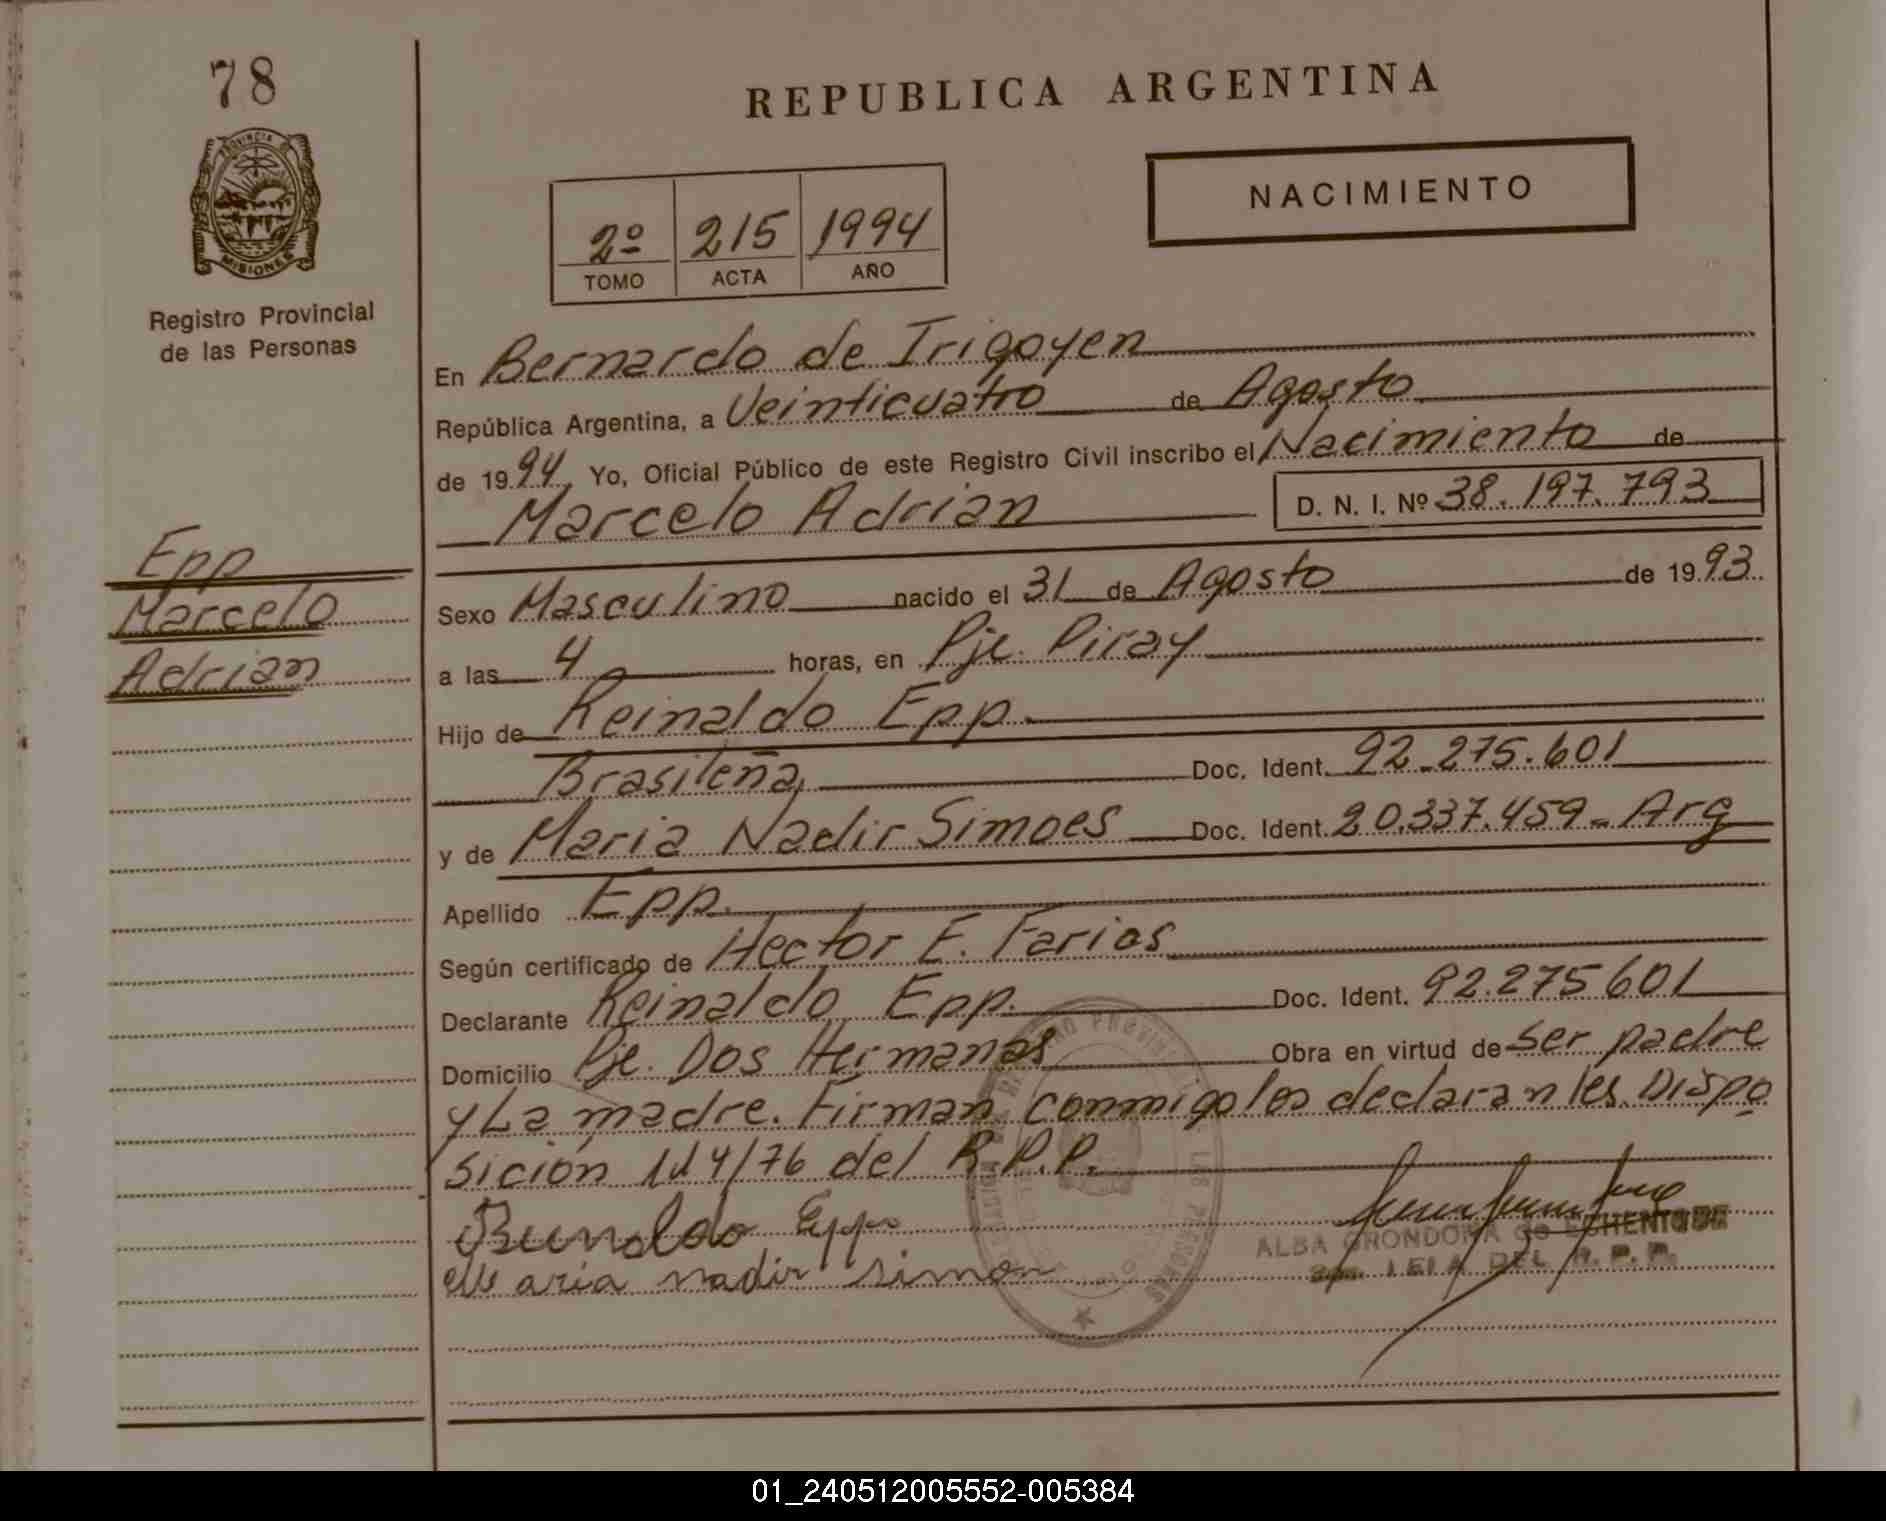 78
REPUBLICA ARGENTINA
PROVINCIA DE
MISIONES
Registro Provincial
de las Personas
NACIMIENTO
2º 215 1994
TOMO ACTA AÑO
En Bernardo de Irigoyen
República Argentina, a Veinticuatro de Agosto
de 1994 Yo, Oficial Público de este Registro Civil inscribo el Nacimiento de
Marcelo Adrian D. N. I. Nº 38.197.793
Epp
Marcelo
Adrian
Sexo Masculino nacido el 31 de Agosto de 1993.
a las 4 horas, en Pje. Piray
Hijo de Reinaldo Epp.
Brasileña, Doc. Ident. 92.275.601
y de Maria Nadir Simoes Doc. Ident. 20.337.459- Arg
Apellido Epp.
Según certificado de Hector E. Farias
Declarante Reinaldo Epp. Doc. Ident. 92.275601
Domicilio Pje. Dos Hermanas Obra en virtud de ser padre
y La madre. Firman conmigo los declarantes. Dispo
sición 114/76 del R.P.P.
Epp
Maria nadir simon
ALBA GRONDONA de ECHENIQUE
DEL R. P. P.
01_240512005552-005384